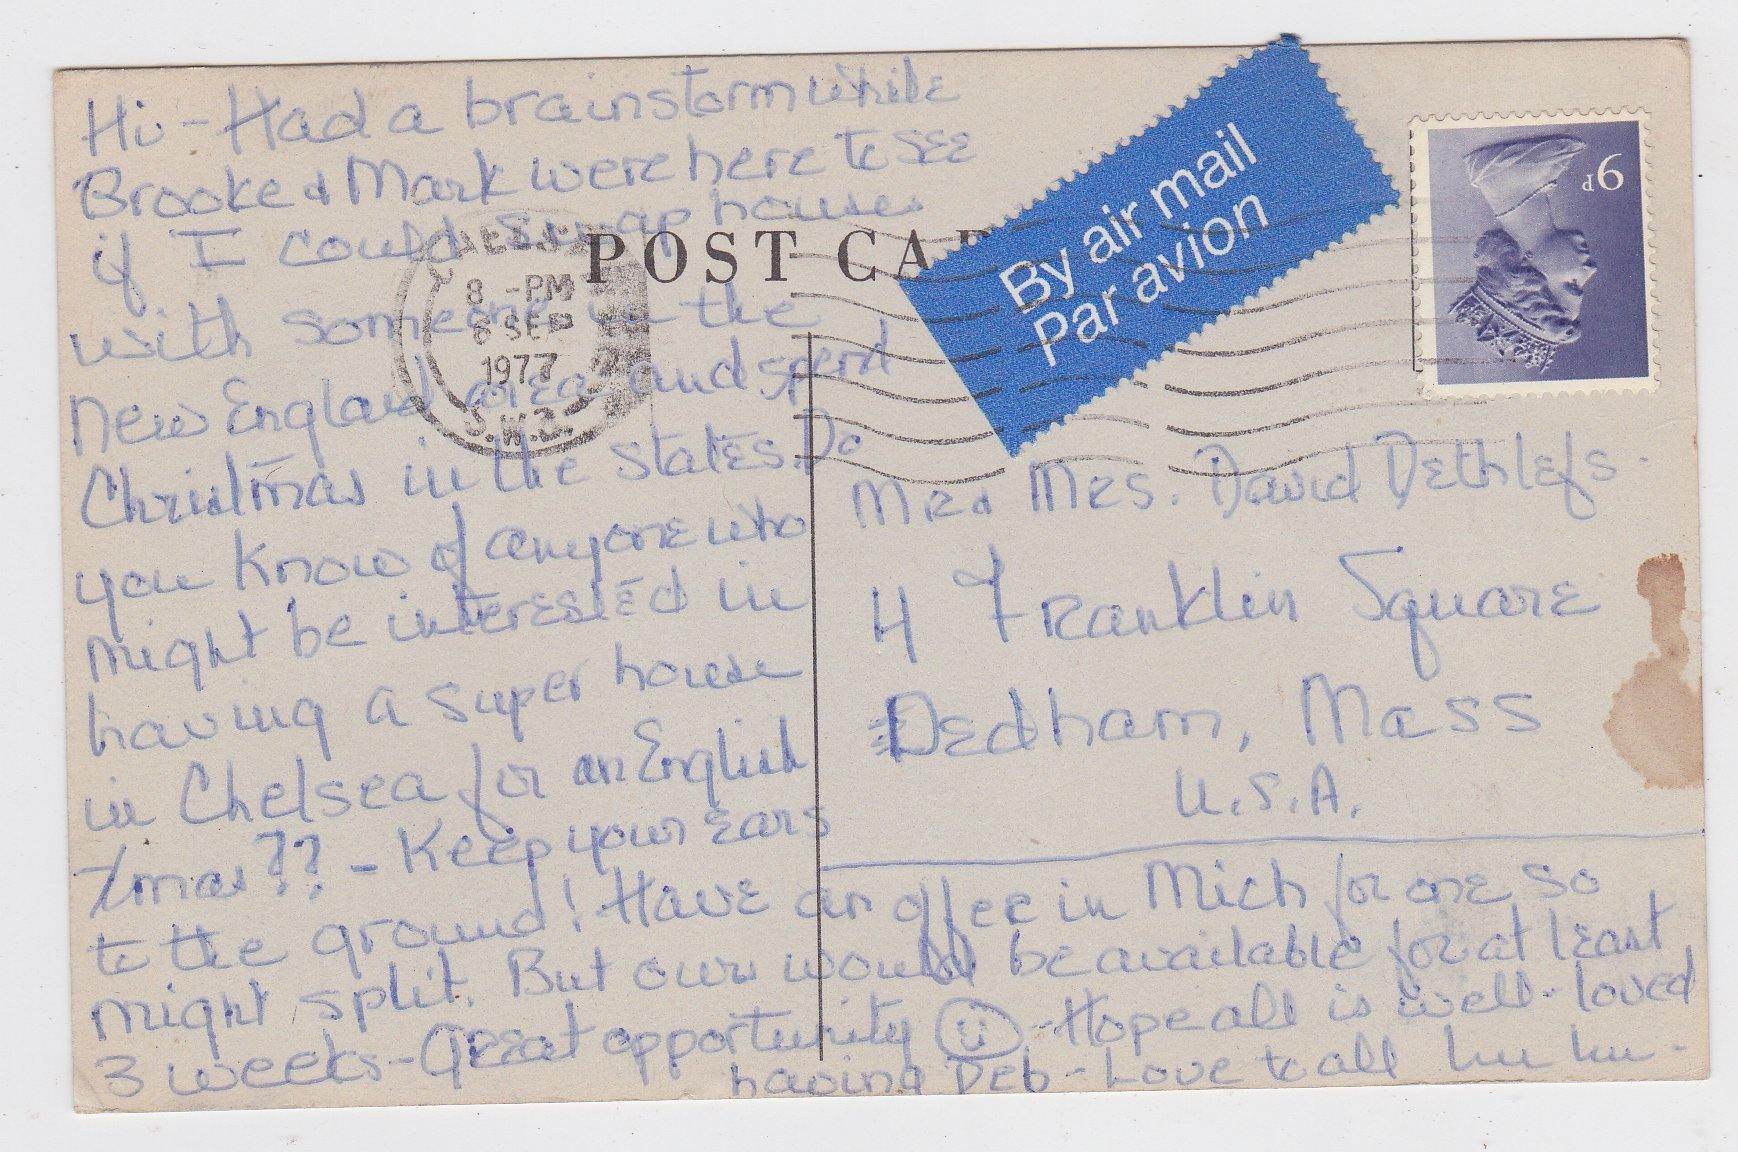 Hi - Had a brainstorm while
Brooke & Mark were here to see
if I could swap houses
with someone in the
New England area and spend
Christmas in the States. Do
you know of anyone who
might be interested in
having a super house
in Chelsea for an English
Xmas?? - Keep your ears
to the ground! Have an offer in Mich for one so
might split. But ours would be available for at least
3 weeks - Great opportunity - Hope all is well - loved
having Deb - Love to all
POST CA
By air mail
Par avion
9p
8 - PM
6 SEP
1977
S.W.3.
Mr & Mrs. David Dethlefs
4 Franklin Square
Dedham, Mass
U.S.A.